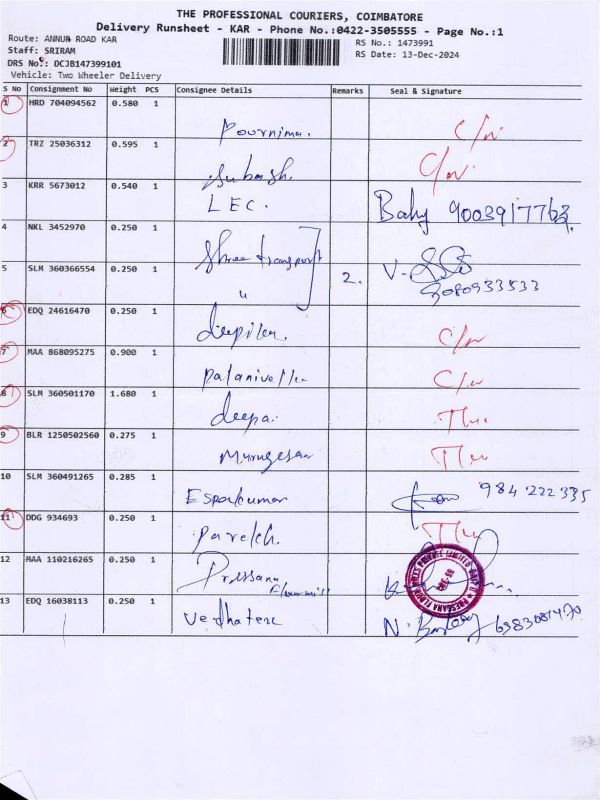 THE PROFESSIONAL COURIERS, COIMBATORE
Delivery Runsheet - KAR - Phone No.:0422-3505555 - Page No.:1
Route: ANNUR ROAD KAR
RS No.: 1473991
Staff: SRIRAM
RS Date: 13-Dec-2024
DRS No.: DCJB147399101
Vehicle: Two Wheeler Delivery
S No Consignment No Weight PCS Consignee Details Remarks Seal & Signature
1 HRD 704094562 0.580 1
Pournima. C/N
2 TRZ 25036312 0.595 1
Subash. C/N
3 KRR 5673012 0.540 1
LEC. Baby
4 NKL 3452970 0.250 1
Shree transport
5 SLM 360366554 0.250 1
" 2. V.
6 EDQ 24616470 0.250 1
deepika. C/N
7 MAA 868095275 0.900 1
Palanivelu C/N
8 SLM 360501170 1.680 1
deepa.
9 BLR 1250502560 0.275 1
Murugesan
10 SLM 360491265 0.285 1
984 222 335
11 DDG 934693 0.250 1
12 MAA 110216265 0.250 1
Pressana Flourmill
13 EDQ 16038113 0.250 1
N.